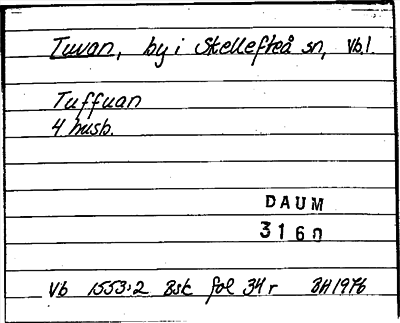 Tuvan, by i Skellefteå sn, Vb.l.
Tuffuan
4 husb.
DAUM
3160
Vb 1553:2 Bsk fol 34 r BH1976